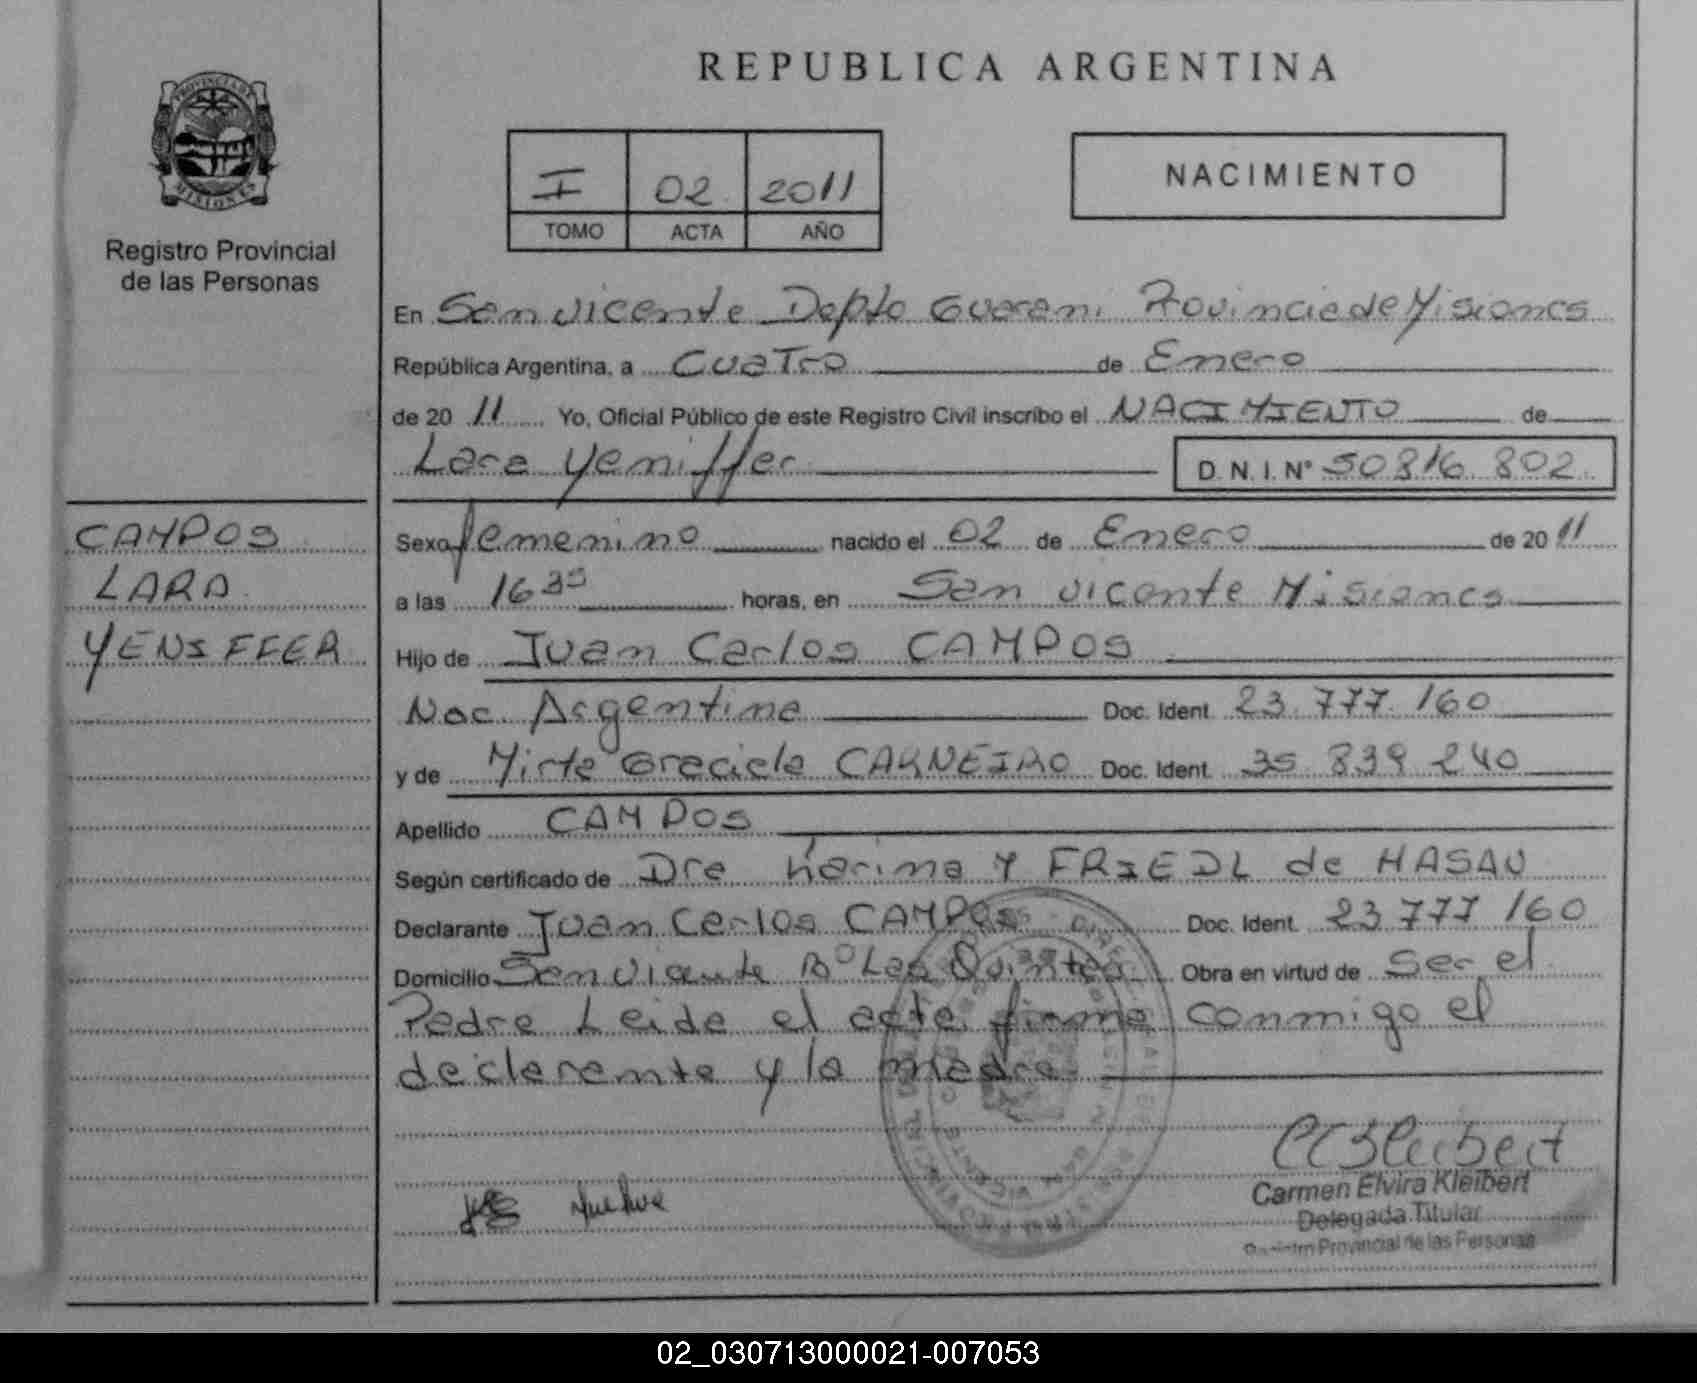 REPUBLICA ARGENTINA
PROVINCIA DE
MISIONES
Registro Provincial
de las Personas
I 02 2011
TOMO ACTA AÑO
NACIMIENTO
En San Vicente Depto Guarani Provincia de Misiones
República Argentina, a Cuatro de Enero
de 20 11 Yo, Oficial Público de este Registro Civil inscribo el NACIMIENTO de
Lara Yeniffer D.N.I. N° 50816.802
CAMPOS
LARA
YENIFFER
Sexo femenino nacido el 02 de Enero de 20 11
a las 16 35 horas, en San Vicente Misiones
Hijo de Juan Carlos CAMPOS
Nac. Argentina Doc. Ident. 23.777.160
y de Mirta Graciela CARNEIRO Doc. Ident. 35 839 240
Apellido CAMPOS
Según certificado de Dra Karina Y FRIEDL de HASAN
Declarante Juan Carlos CAMPOS Doc. Ident. 23 777 160
Domicilio San Vicente B° Las Quintas Obra en virtud de Ser el
Padre Leida el acta firma conmigo el
declarante y la madre
Carmen Elvira Kleibert
Delegada Titular
Registro Provincial de las Personas
02_030713000021-007053